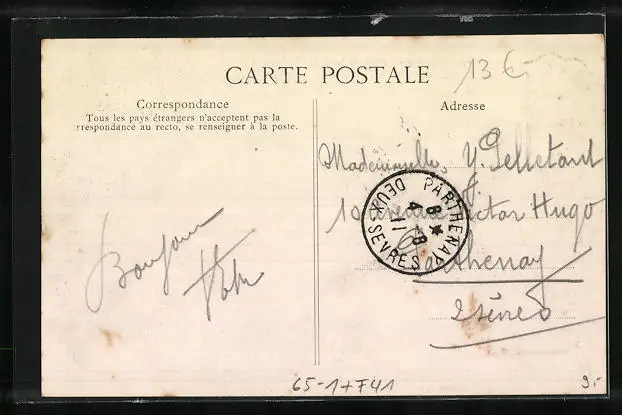 CARTE POSTALE
13 €-
Correspondance
Tous les pays étrangers n'acceptent pas la
rrespondance au recto, se renseigner à la poste.
Bonjour
Adresse
Mademoiselle Y. Pelletant
10 avenue Victor Hugo
Parthenay
2 sèvres
PARTHENAY
DEUX SEVRES
8 *
4 -8
11
65-1+741
9.-